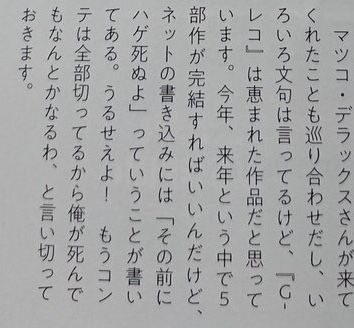 マツコ・デラックスさんが来て
くれたことも巡り合わせだし、い
ろいろ文句は言ってるけど、『G-
レコ』は恵まれた作品だと思って
います。今年、来年という中で5
部作が完結すればいいんだけど、
ネットの書き込みには「その前に
ハゲ死ぬよ」っていうことが書い
てある。うるせえよ！　もうコン
テは全部切ってるから俺が死んで
もなんとかなるわ、と言い切って
おきます。